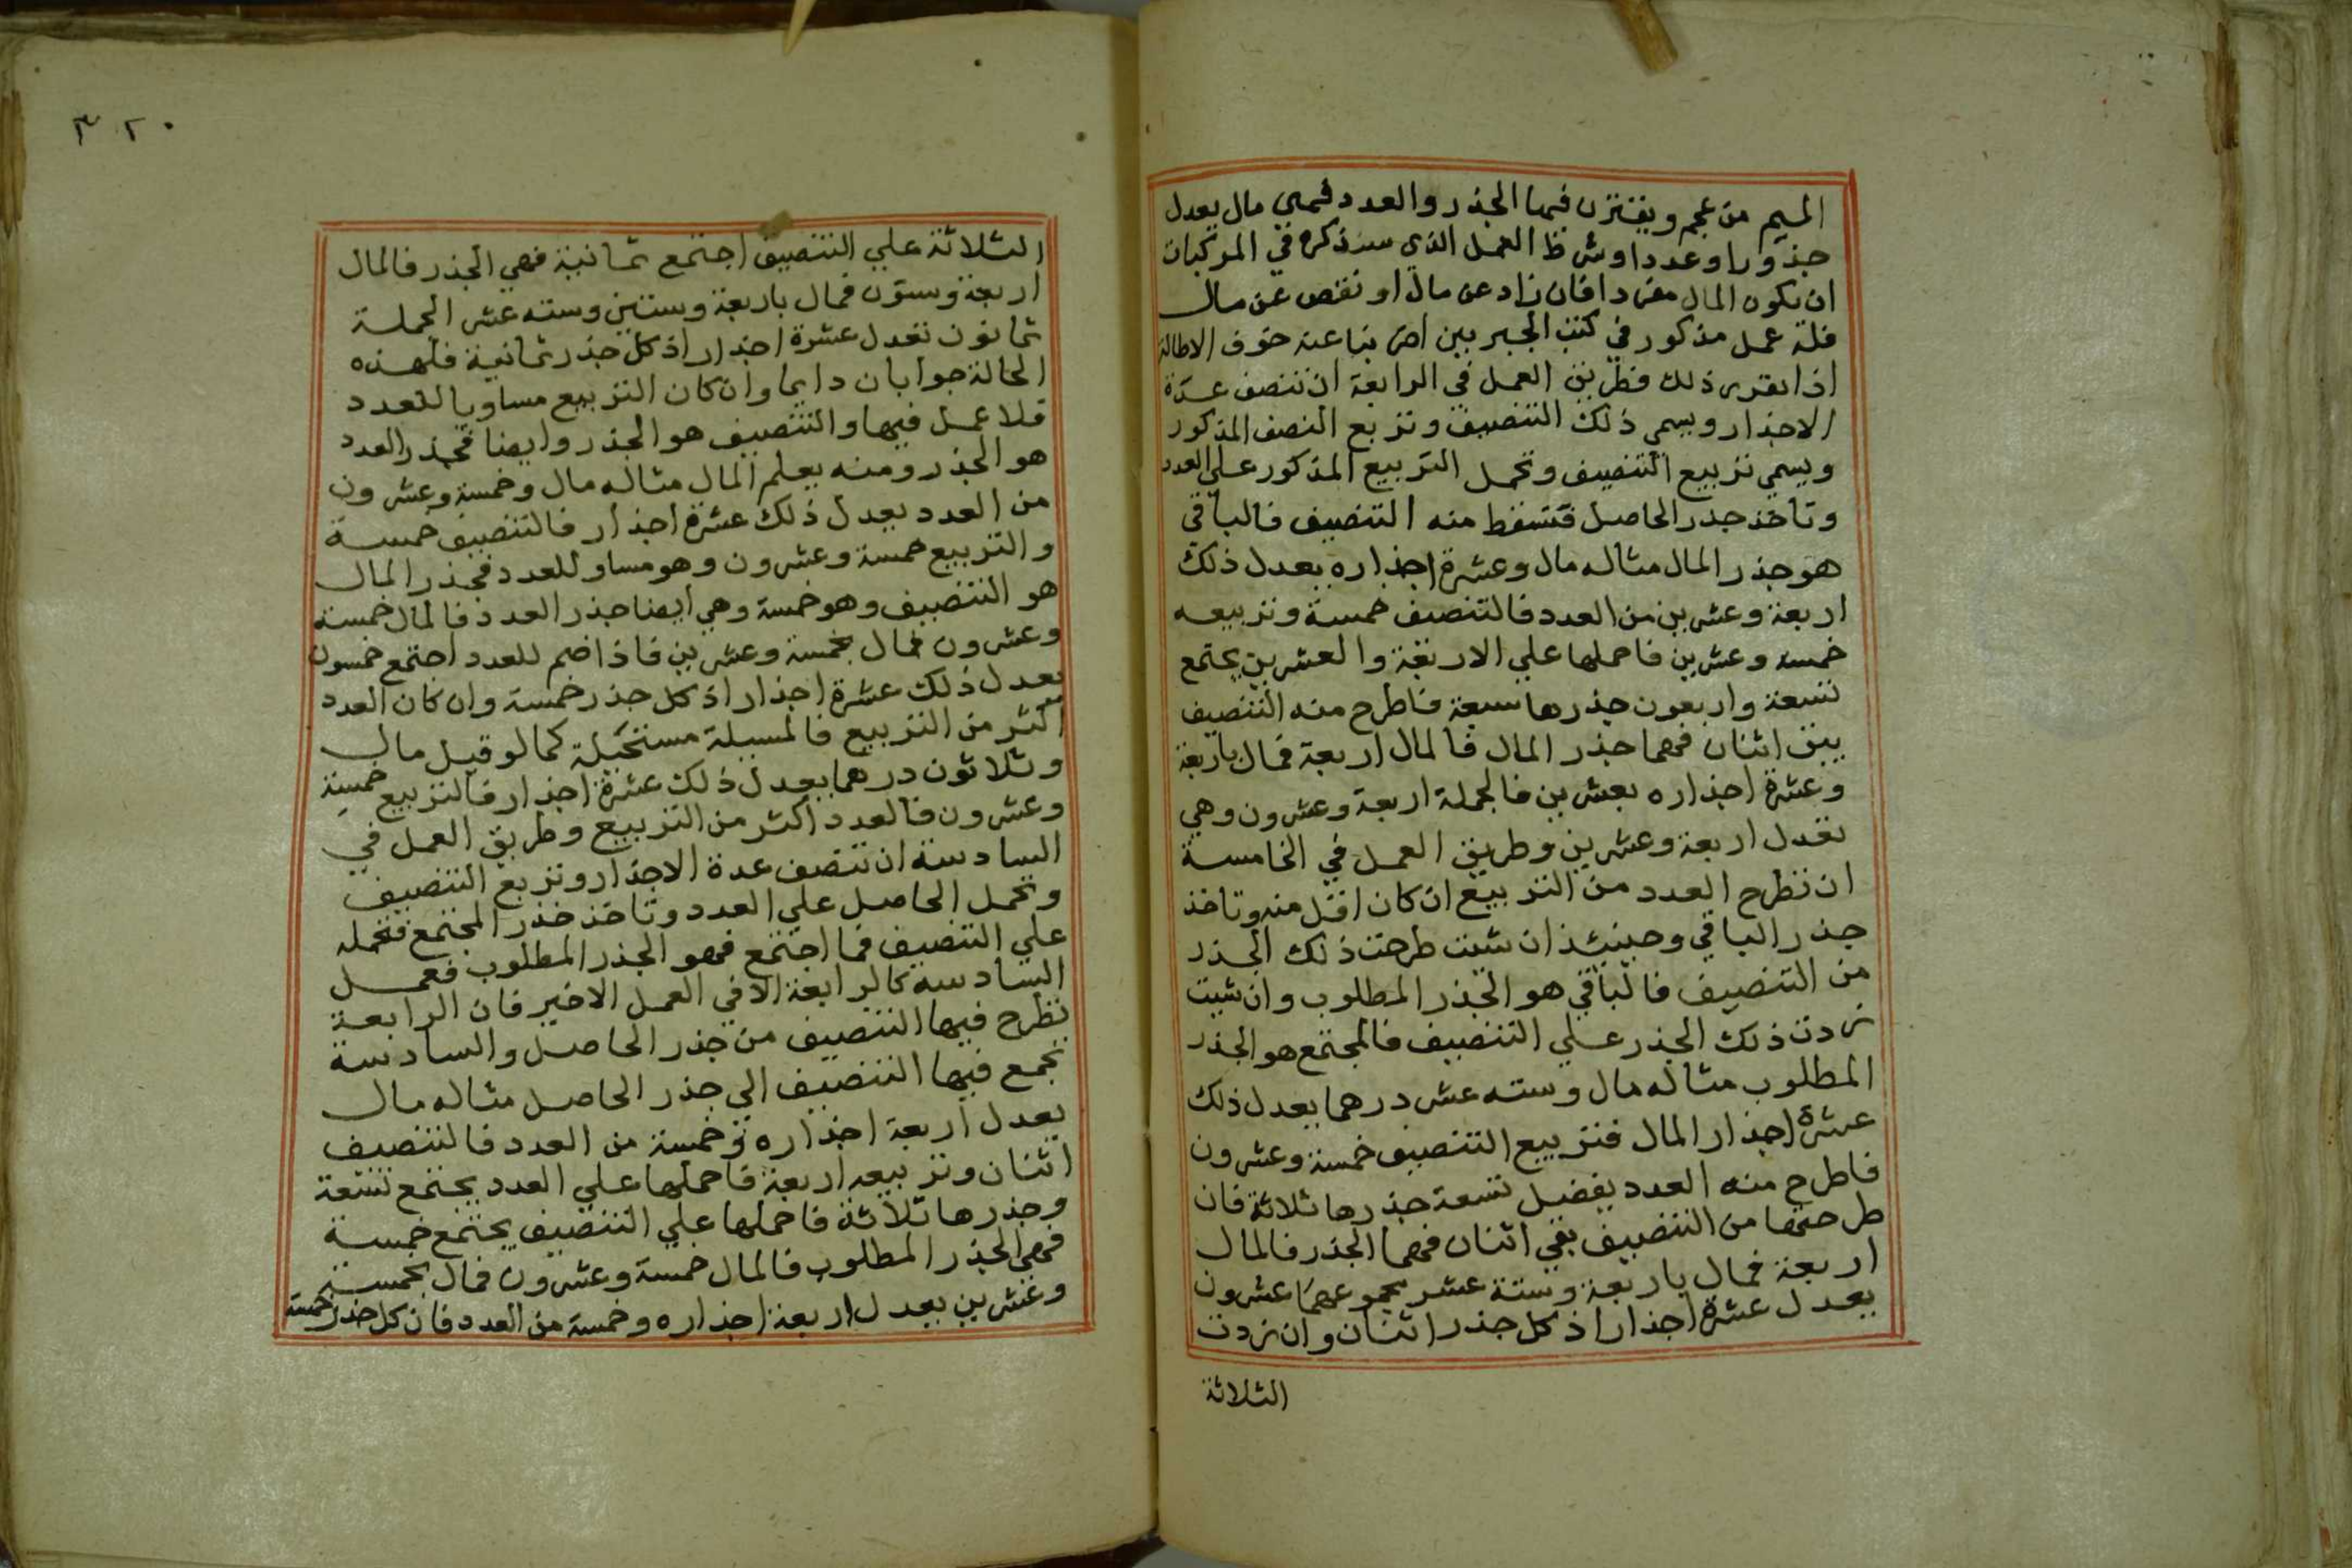 الميم من عجم ويقترن فيها الجذر والعدد فهي مال يعدل
جذورا وعددا وشرط العمل الذي سنذكره في المركبات
ان يكون المال مفردا فان زاد عن مال او نقص عن مال
فله عمل مذكور في كتب الجبر بين اضربنا عنه خوف الاطالة
اذا تقرر ذلك فطريق العمل في الرابعة ان تنصف عدة
الاجذار ويسمي ذلك التنصيف وتربع النصف المذكور
ويسمي تربيع التنصيف وتحمل التربيع المذكور علي العدد
وتاخذ جذر الحاصل فتسقط منه التنصيف فالباقي
هو جذر المال مثاله مال وعشرة اجذاره يعدل ذلك
اربعة وعشرين من العدد فالتنصيف خمسة وتربيعه
خمسه وعشرين فاحملها علي الاربعة والعشرين يجتمع
تسعة واربعون جذرها سبعة فاطرح منه التنصيف
يبق اثنان فهما جذر المال فالمال اربعة فمال باربعة
وعشرة اجذاره بعشرين فالجملة اربعة وعشرون وهي
تعدل اربعة وعشرين وطريق العمل في الخامسة
ان تطرح العدد من التربيع ان كان اقل منه وتاخذ
جذر الباقي وحينئذ ان شئت طرحت ذلك الجذر
من التنصيف فالباقي هو الجذر المطلوب وان شيت
زدت ذلك الجذر علي التنصيف فالمجتمع هو الجذر
المطلوب مثاله مال وسته عشر درهما يعدل ذلك
عشرة اجذار المال فتربيع التنصيف خمسة وعشرون
فاطرح منه العدد يفضل تسعة جذرها ثلاثة فان
طرحتها من التنصيف بقي اثنان فهما الجذر فالمال
اربعة فمال باربعة وستة عشر مجموعهما عشرون
يعدل عشرة اجذار اذ كل جذر اثنان وان زدت
الثلاثة
٣٢٠
الثلاثة علي التنصيف اجتمع ثمانية فهي الجذر فالمال
اربعة وستون فمال باربعة وستين وسته عشر الجملة
ثمانون تعدل عشرة اجذار اذ كل جذر ثمانية فلهذه
الحالة جوابان دايما وان كان التربيع مساويا للعدد
فلا عمل فيها والتنصيف هو الجذر وايضا فجذر العدد
هو الجذر ومنه يعلم المال مثاله مال وخمسة وعشرون
من العدد يعدل ذلك عشرة اجذار فالتنصيف خمسة
والتربيع خمسة وعشرون وهو مساو للعدد فجذر المال
هو التنصيف وهو خمسة وهي ايضا جذر العدد فالمال خمسة
وعشرون فمال بخمسة وعشرين فاذا ضم للعدد اجتمع خمسون
يعدل ذلك عشرة اجذار اذ كل جذر خمسة وان كان العدد
اكثر من التربيع فالمسيلة مستحيلة كما لو قيل مال
وثلاثون درهما يعدل ذلك عشرة اجذار فالتربيع خمسة
وعشرون فالعدد اكثر من التربيع وطريق العمل في
السادسة ان تنصف عدة الاجذار وتربع التنصيف
وتحمل الحاصل علي العدد وتاخذ جذر المجتمع فتحمله
علي التنصيف فما اجتمع فهو الجذر المطلوب فعمل
السادسة كالرابعة الا في العمل الاخير فان الرابعة
تطرح فيها التنصيف من جذر الحاصل والسادسة
تجمع فيها التنصيف الي جذر الحاصل مثاله مال
يعدل اربعة اجذاره وخمسة من العدد فالتنصيف
اثنان وتربيعه اربعة فاحملها علي العدد يجتمع تسعة
وجذرها ثلاثة فاحملها علي التنصيف يجتمع خمسة
فهي الجذر المطلوب فالمال خمسة وعشرون فمال بخمسة
وعشرين يعدل اربعة اجذاره وخمسة من العدد فان كل جذر خمسة